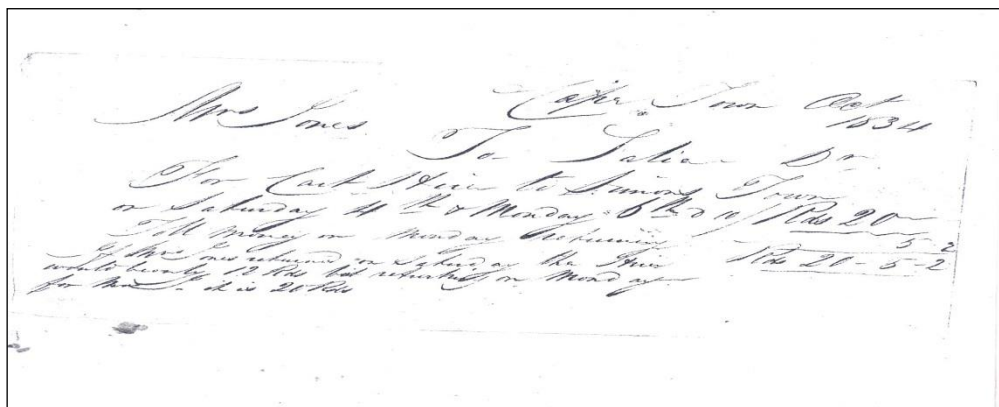 Cape Town Oct
1834
Mrs Jones
To Salie Dr
For Cart Hire to Simons Town
on Saturday 4th & Monday 6th Rds 20
Toll money on Monday returning 5-2
If Mrs Jones returned on Saturday the Hire Rds 20-5-2
would be only 12 Rds but returning on Monday
for it is 20 Rds